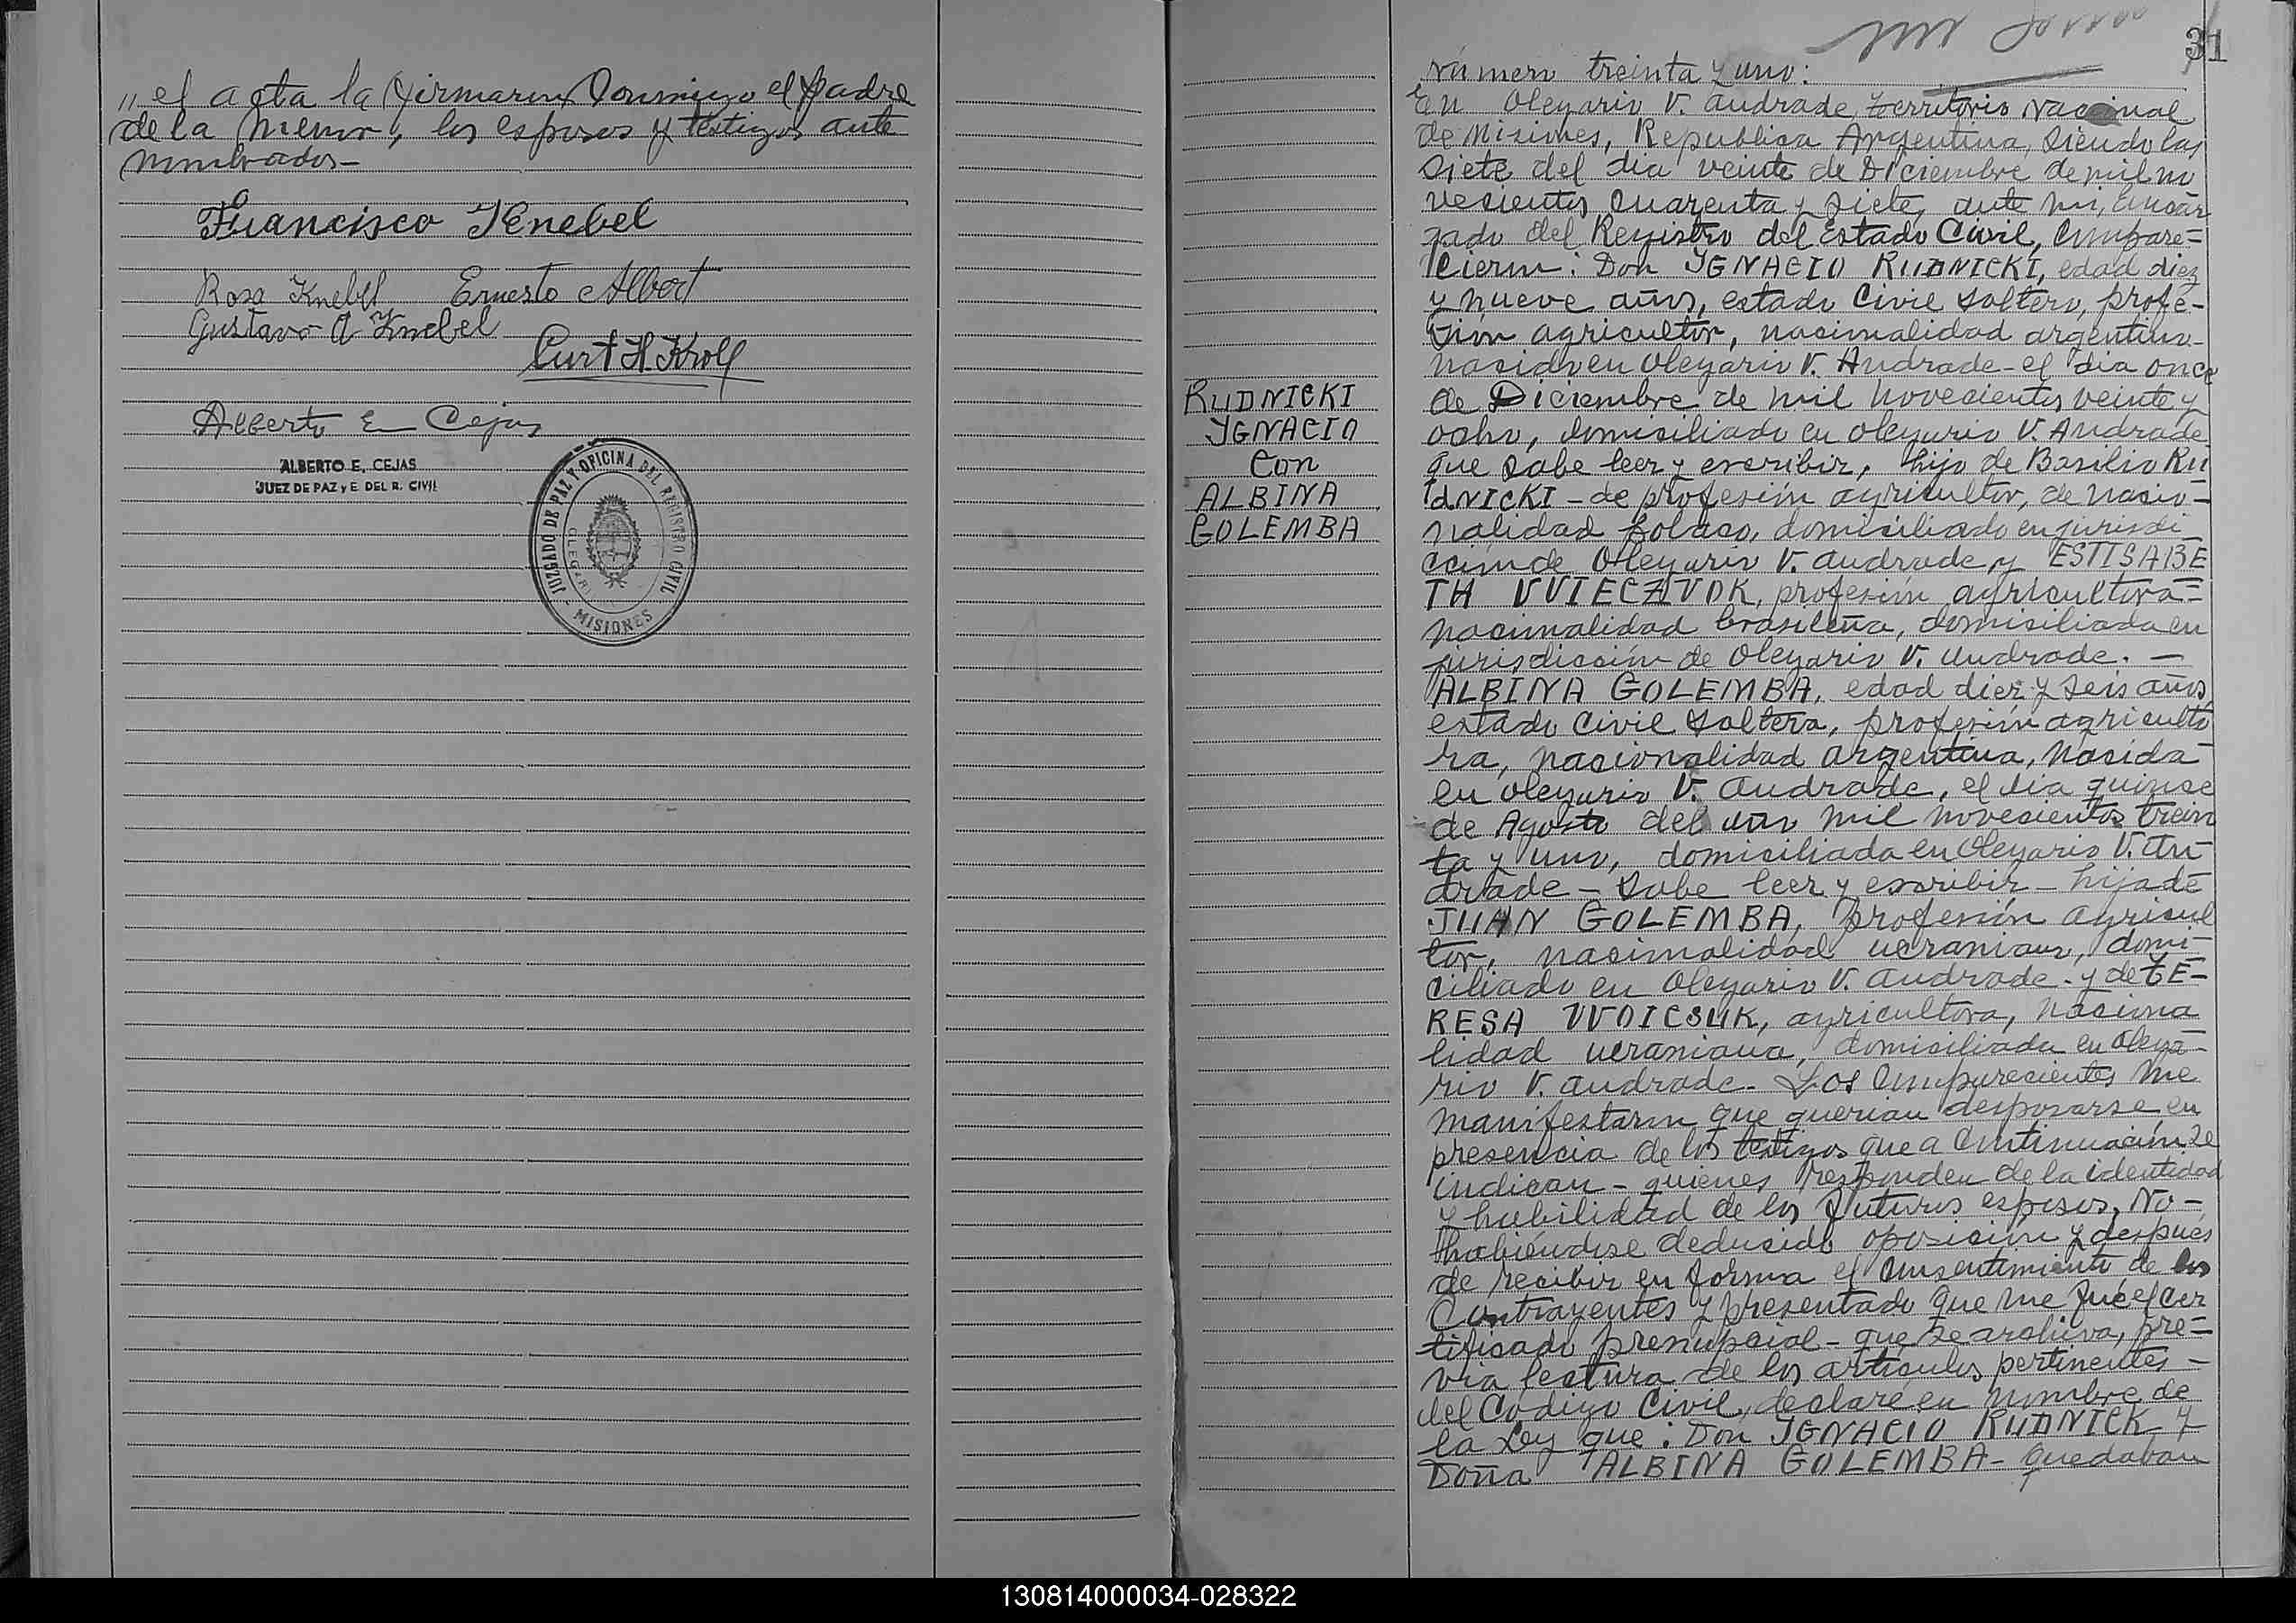 " el acta la firmaron Conmigo el padre
de la menor, los esposos y testigos ante
nombrados-
Francisco Knebel
Rosa Knebel Ernesto Albert
Gustavo A Knebel
Curt H. Kroll
Alberto E. Cejas
ALBERTO E. CEJAS
JUEZ DE PAZ y E. DEL R. CIVIL
JUZGADO DE PAZ Y OFICINA DEL REGISTRO CIVIL
- MISIONES -
31
Número treinta y uno:
En Olegario V. Andrade, Territorio Nacional
de Misiones, Republica Argentina, Siendo las
Siete del dia veinte de Diciembre de mil no
vecientos Cuarenta y siete, ante mi, encar
gado del Registro del Estado Civil, Compare=
Cieron: Don YGNACIO RUDNICKI, edad diez
y nueve años, estado Civil Soltero, profe-
sión agricultor, nacionalidad argentino-
nacido en Olegario V. Andrade- el dia once
RUDNICKI
YGNACIO
Con
ALBINA
GOLEMBA
de Diciembre de mil novecientos veinte y
ocho, domiciliado en Olegario V. Andrade
que Sabe leer y escribir, hijo de Basilio RU
dNICKI - de profesión agricultor, de nacio-
nalidad polaco, domiciliado en jurisdi
cción de Olegario V. Andrade, y ESTISABE
TH VVIECZVOK, profesión agricultora=
nacionalidad brasileña, domiciliada en
jurisdicción de Olegario V. Andrade. -
ALBINA GOLEMBA, edad diez y seis años,
estado Civil Soltera, profesión agriculto
ra, nacionalidad argentina, nacida
en Olegario V. Andrade, el dia quinse
de Agosto del año mil novecientos trein
ta y uno, domiciliada en Olegario V. An-
drade - Sabe leer y escribir - hija de
JUAN GOLEMBA, profesión agricul
tor, nacionalidad ucraniano, domi-
ciliado en Olegario V. Andrade. y de TE-
RESA VVOICSUK, agricultora, naciona
lidad ucraniana, domiciliada en Olega-
rio V. Andrade- Los Comparecientes me
manifestaron que querian desposarse en
presencia de los testigos que a Continuación se
indican - quienes responden de la identidad
y habilidad de los futuros esposos, No-
habiéndose deducido oposición y después
de recibir en forma el Consentimiento de los
Contrayentes y presentado que me fué el cer
tificado prenupcial - que se archiva, pre=
via lectura de los articulos pertinentes -
del Código Civil, declaré en nombre de
la Ley que: Don YGNACIO RUDNICK y
Doña ALBINA GOLEMBA- quedaban
130814000034-028322